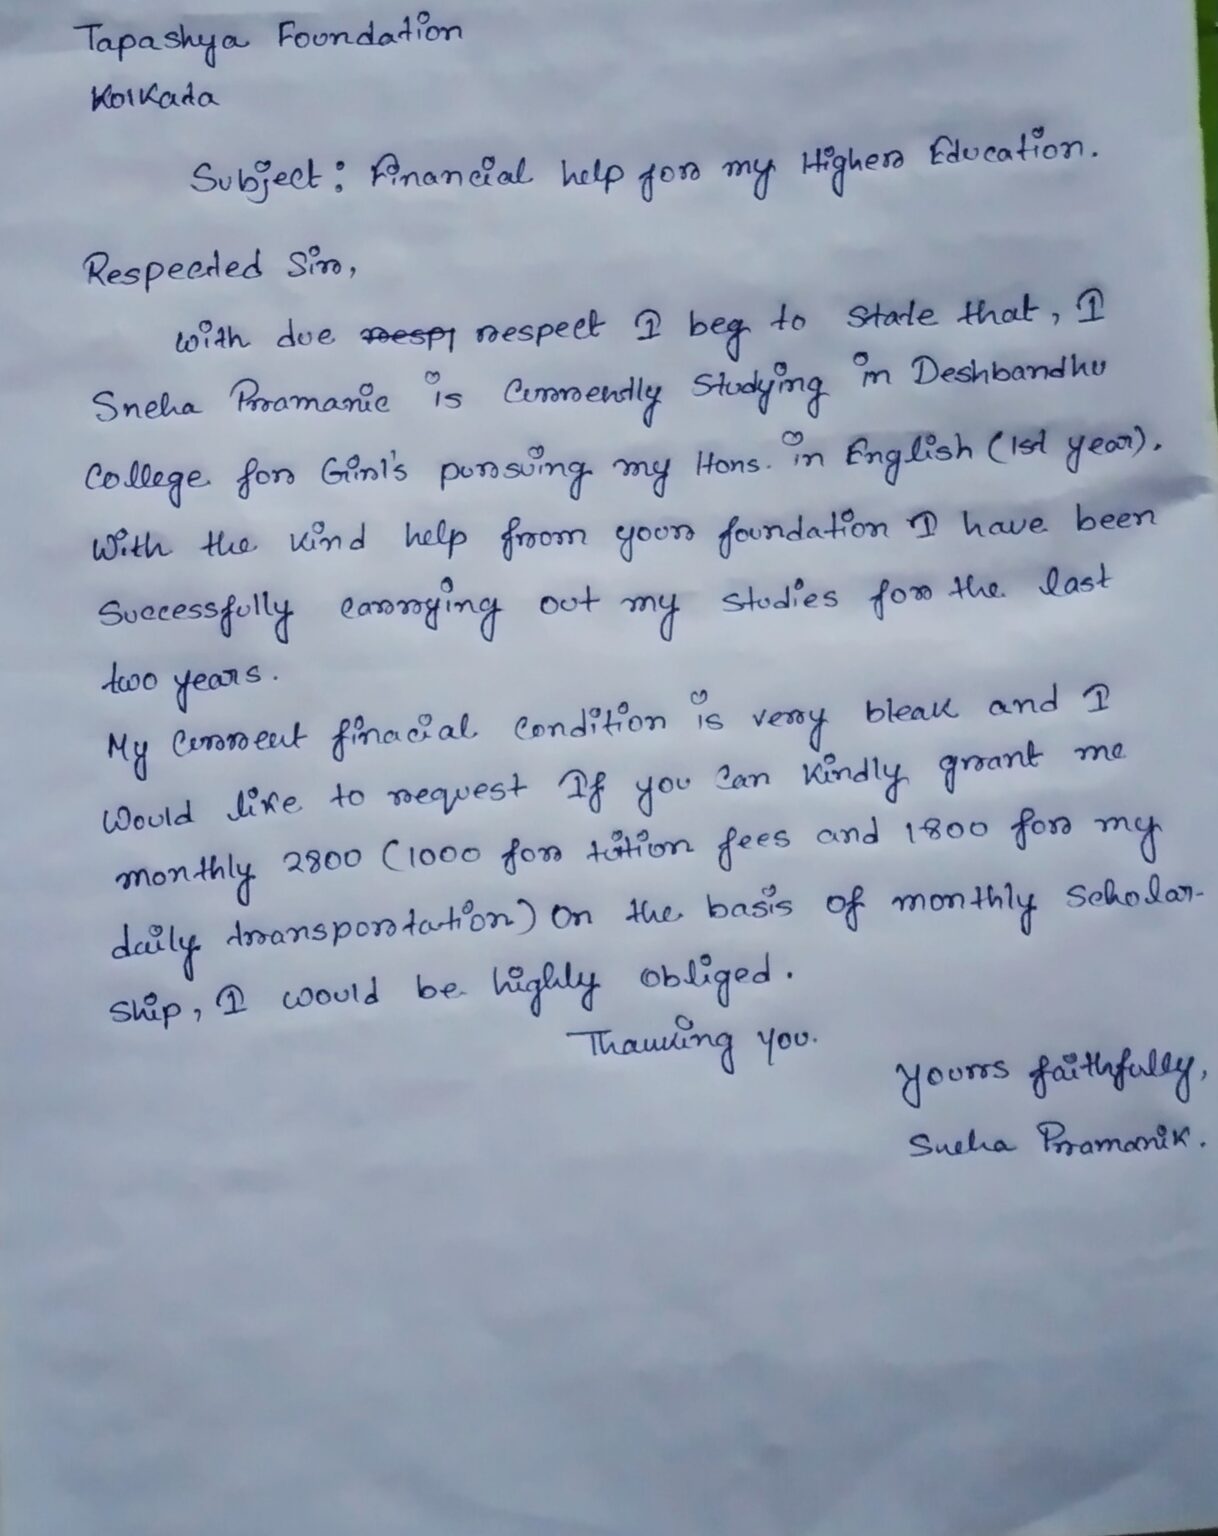 Tapashya Foundation
Kolkata
Subject: Financial help for my Higher Education.
Respected Sir,
with due respect I beg to state that, I
Sneha Pramanic is Currently Studying in Deshbandhu
College for Girl's pursuing my Hons. in English (1st year).
With the kind help from your foundation I have been
Successfully carrying out my studies for the last
two years.
My Current finacial Condition is very bleak and I
Would like to request If you Can kindly grant me
monthly 2800 (1000 for tution fees and 1800 for my
daily transportation) On the basis of monthly Scholar-
Ship, I would be highly obliged.
Thanking you.
yours faithfully,
Sneha Pramanik.